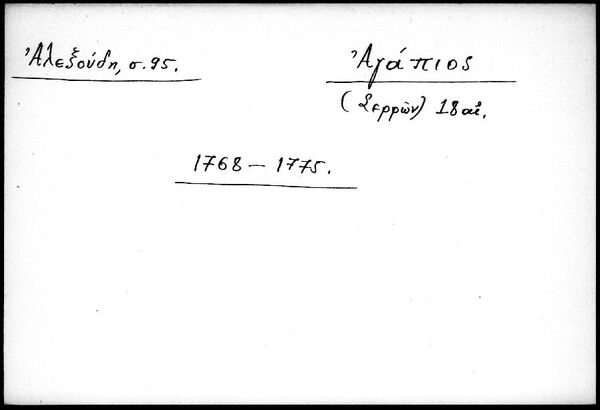 Ἀλεξούδη, σ. 95.
Ἀγάπιος
(Σερρῶν) 18 αἰ.
1768 – 1775.